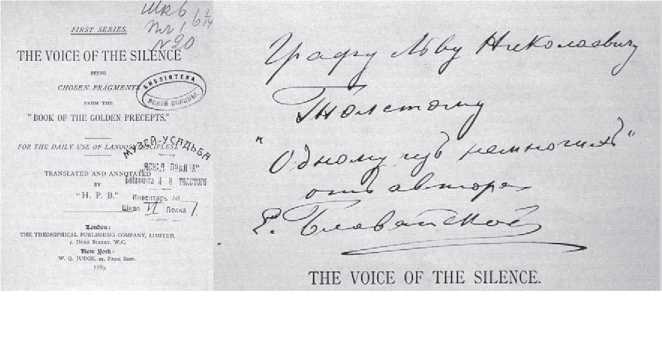 Шк 6
№ 20
FIRST SERIES.
THE VOICE OF THE SILENCE
BEING
CHOSEN FRAGMENTS
FROM THE
"BOOK OF THE GOLDEN PRECEPTS."
FOR THE DAILY USE OF LANOOS
TRANSLATED AND ANNOTATED
BY
"H. P. B."
БИБЛІОТЕКА
МУЗЕЙ-УСАДЬБА
ЯСНАЯ ПОЛЯНА
ТОЛСТОГО
Инвентарь №
Шкаф VI Полка 1
London:
THE THEOSOPHICAL PUBLISHING COMPANY, LIMITED,
7, Duke Street, W.C.
New York:
W. Q. JUDGE, Park Row.
1889.
Графу Льву Николаевичу
Толстому
"Одному изъ немногихъ"
отъ автора
Е. Блаватской
THE VOICE OF THE SILENCE.